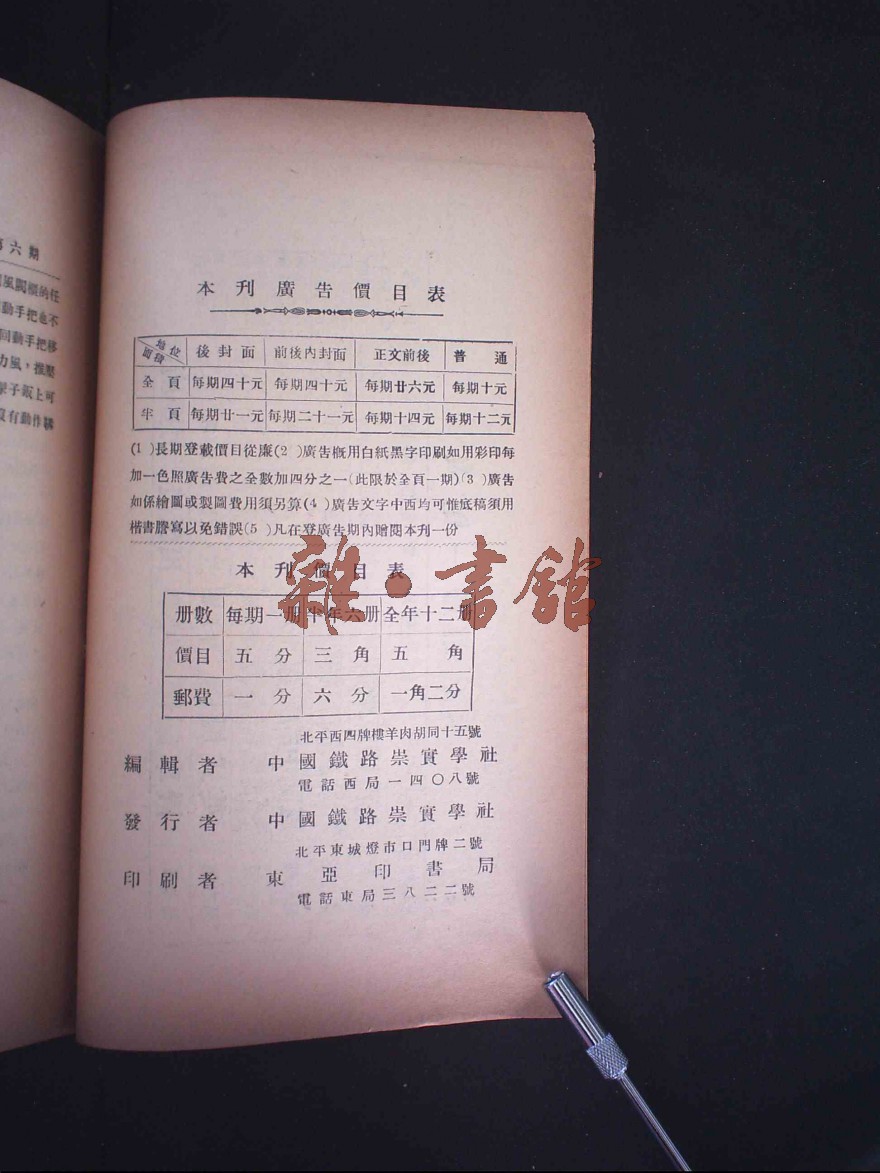 第六期
本刊廣告價目表
地位 面積 後封面 前後內封面 正文前後 普通
全頁 每期四十元 每期四十元 每期廿六元 每期十元
半頁 每期廿一元 每期二十一元 每期十四元 每期十二元
(1)長期登載價目從廉(2)廣告概用白紙黑字印刷如用彩印每
加一色照廣告費之全數加四分之一(此限於全頁一期)(3)廣告
如係繪圖或製圖費用須另算(4)廣告文字中西均可惟底稿須用
楷書謄寫以免錯誤(5)凡在登廣告期內贈閱本刊一份
本刊價目表
册數 每期一册 半年六册 全年十二册
價目 五分 三角 五角
郵費 一分 六分 一角二分
北平西四牌樓羊肉胡同十五號
編輯者 中國鐵路崇實學社
電話西局一四〇八號
發行者 中國鐵路崇實學社
北平東城燈市口門牌二號
印刷者 東亞印書局
電話東局三八二二號
雜·書館